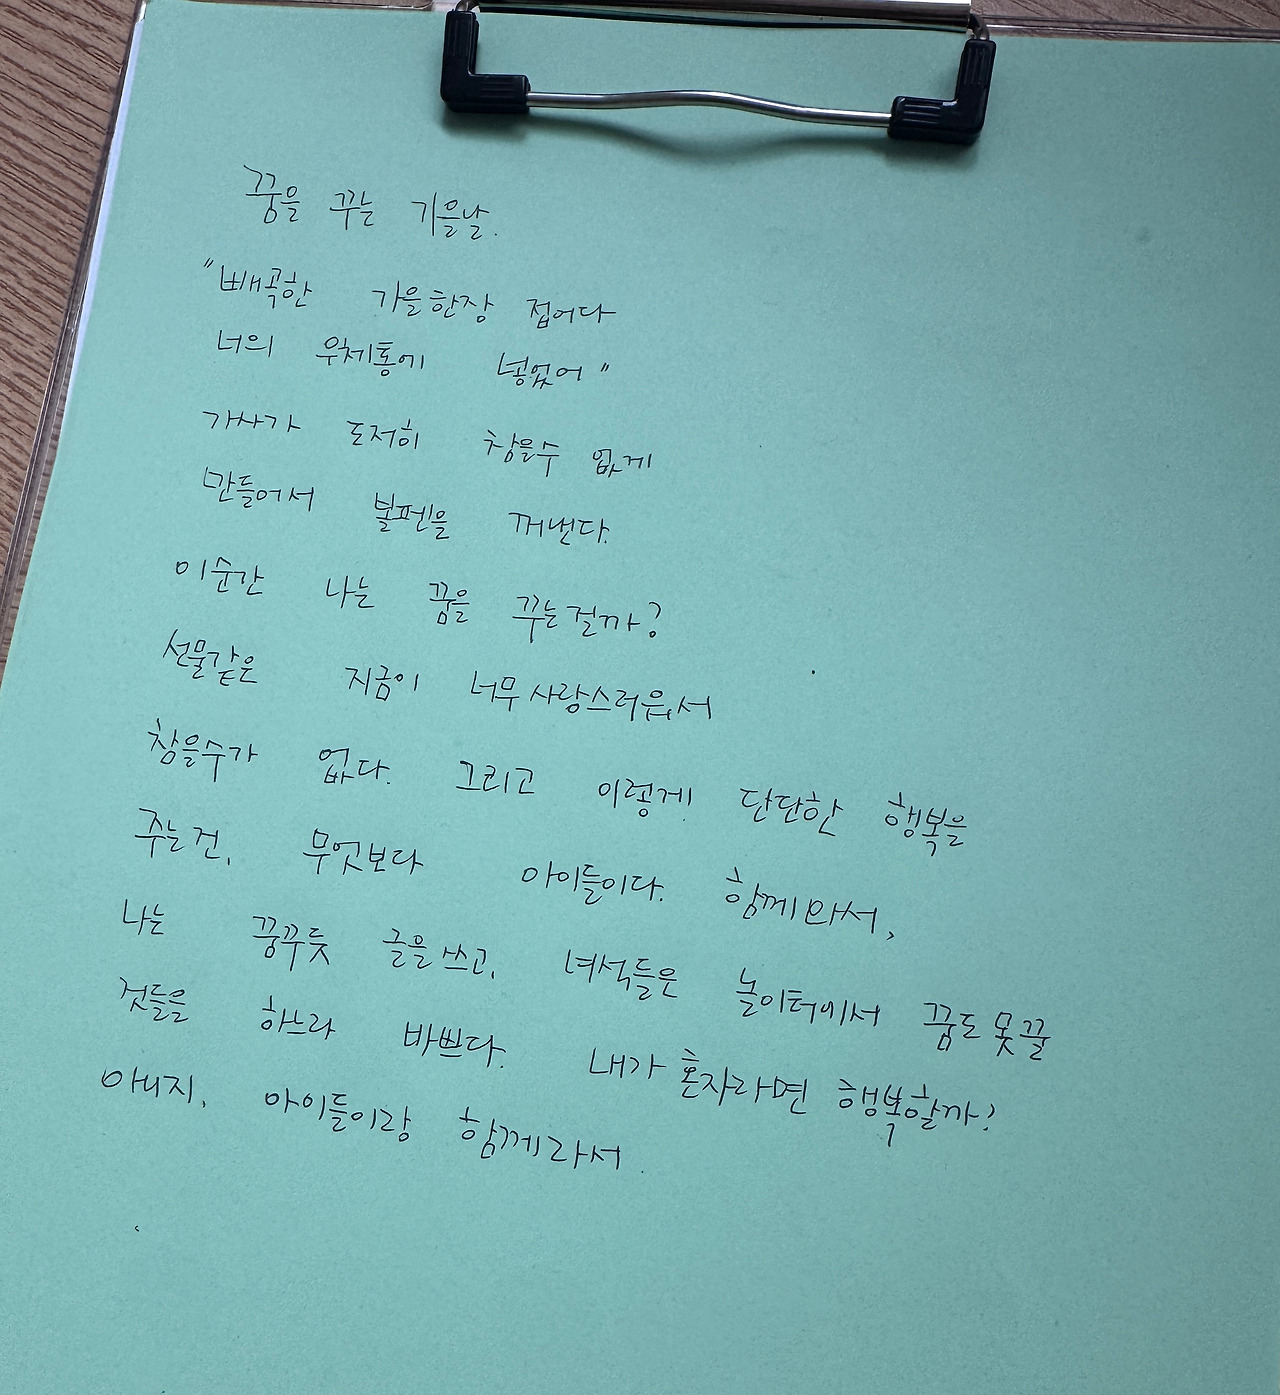 꿈을 꾸는 가을날.
"빼곡한 가을 한장 접어다
너의 우체통에 넣었어"
가사가 도저히 참을수 없게
만들어서 볼펜을 꺼낸다.
이순간 나는 꿈을 꾸는걸까?
선물같은 지금이 너무 사랑스러워서
참을수가 없다. 그리고 이렇게! 단단한 행복을
주는건, 무엇보다 아이들이다. 함께와서,
나는 꿈꾸듯 글을 쓰고, 녀석들은 놀이터에서 꿈도 못 꿀
것들을 하느라 바쁘다. 내가 혼자라면 행복할까?
아니지, 아이들이랑 함께라서.